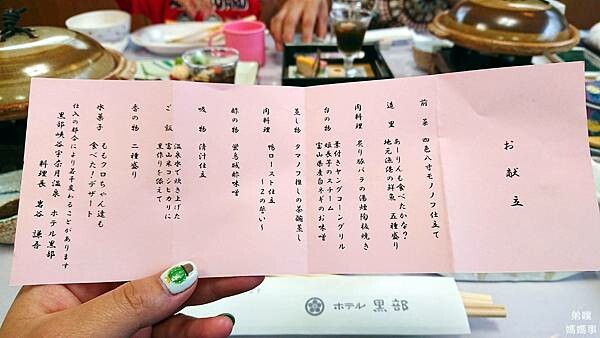 お献立
前菜 四色八寸モノノフ仕立て
造里 あーりんも食べたかな?
地元漁港の鮮魚 五種盛り
肉料理 炙り豚バラの湯煙陶板焼き
台の物 葉付きヤングコーングリル
姫長芋のスチーム
富山県産白ネギのお味噌
蒸し物 タマノフ推しの茶碗蒸し
肉料理 鴨ロースト仕立
~2の誓い~
酢の物 蛍烏賊酢味噌
吸物 清汁仕立
ご飯 温泉水で炊き上げた
富山米コシヒカリに
黒作りを添えて
香の物 二種盛り
水菓子 ももクロちゃん達も
食べた!デザート
仕入の都合により若干変わることがあります
黒部峡谷宇奈月温泉 ホテル黒部
料理長 岩谷 謙吾
ホテル黒部
弟嫂
媽媽事